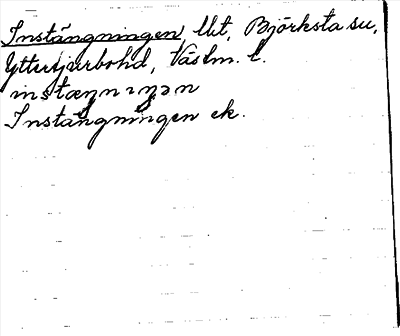 Instängningen, Ut, Björksta sn,
Yttertjurbohd, Väslm. l.
instæŋnıŋən
Instängningen ek.